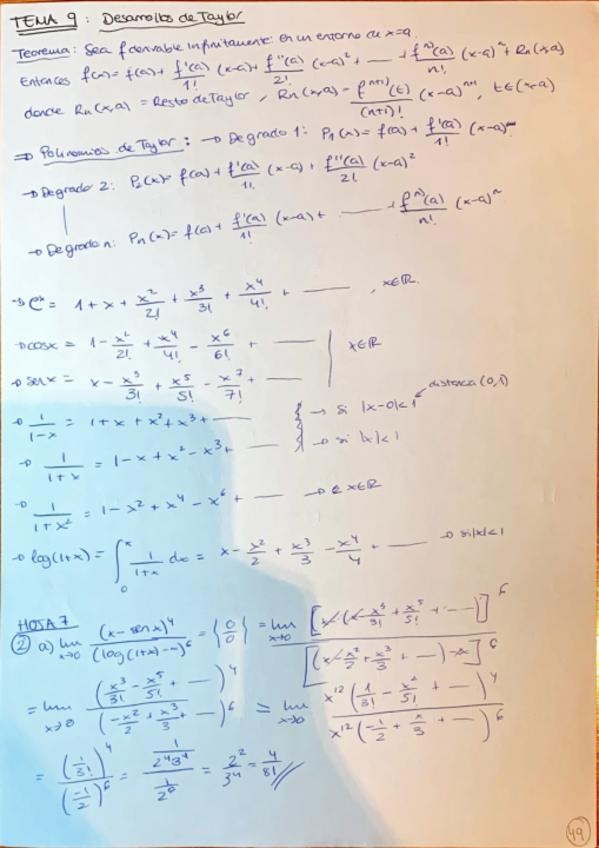 TEMA 9: Desarrollos de Taylor
Teorema: Sea f derivable infinitamente en un entorno de x=a.
Entonces f(x) = f(a) + f'(a)/1! (x-a) + f''(a)/2! (x-a)² + --- + fⁿ⁾(a)/n! (x-a)ⁿ + Rn(x,a)
donde Rn(x,a) = Resto de Taylor, Rn(x,a) = fⁿ⁺¹⁾(t)/(n+1)! (x-a)ⁿ⁺¹, t∈(x,a)
⇒ Polinomios de Taylor: → De grado 1: P₁(x) = f(a) + f'(a)/1! (x-a)
→ De grado 2: P₂(x) = f(a) + f'(a)/1! (x-a) + f''(a)/2! (x-a)²
→ De grado n: Pn(x) = f(a) + f'(a)/1! (x-a) + --- + fⁿ⁾(a)/n! (x-a)ⁿ
→ eˣ = 1 + x + x²/2! + x³/3! + x⁴/4! + ---, x∈ℝ.
→ cosx = 1 - x²/2! + x⁴/4! - x⁶/6! + --- x∈ℝ
→ senx = x - x³/3! + x⁵/5! - x⁷/7! + ---
distancia (0,1)
→ 1/(1-x) = 1 + x + x² + x³ + --- → si |x-0|<1
→ 1/(1+x) = 1 - x + x² - x³ + --- → si |x|<1
→ 1/(1+x²) = 1 - x² + x⁴ - x⁶ + --- → x∈ℝ
→ log(1+x) = ∫₀ˣ 1/(1+x) dx = x - x²/2 + x³/3 - x⁴/4 + --- → si |x|<1
HOJA 7
② a) lim x→0 (x-senx)⁴/(log(1+x)-x)⁶ = {0/0} = lim x→0 [x-(x-x³/3!+x⁵/5!+---)]⁴/[(x-x²/2+x³/3+---)-x]⁶
= lim x→0 (x³/3!-x⁵/5!+---)⁴/(-x²/2+x³/3+---)⁶ = lim x→0 x¹²(1/3!-x²/5!+---)⁴/x¹²(-1/2+x/3+---)⁶
= (1/3!)⁴/(-1/2)⁶ = 1/(2⁴3⁴)/(1/2⁶) = 2²/3⁴ = 4/81
49